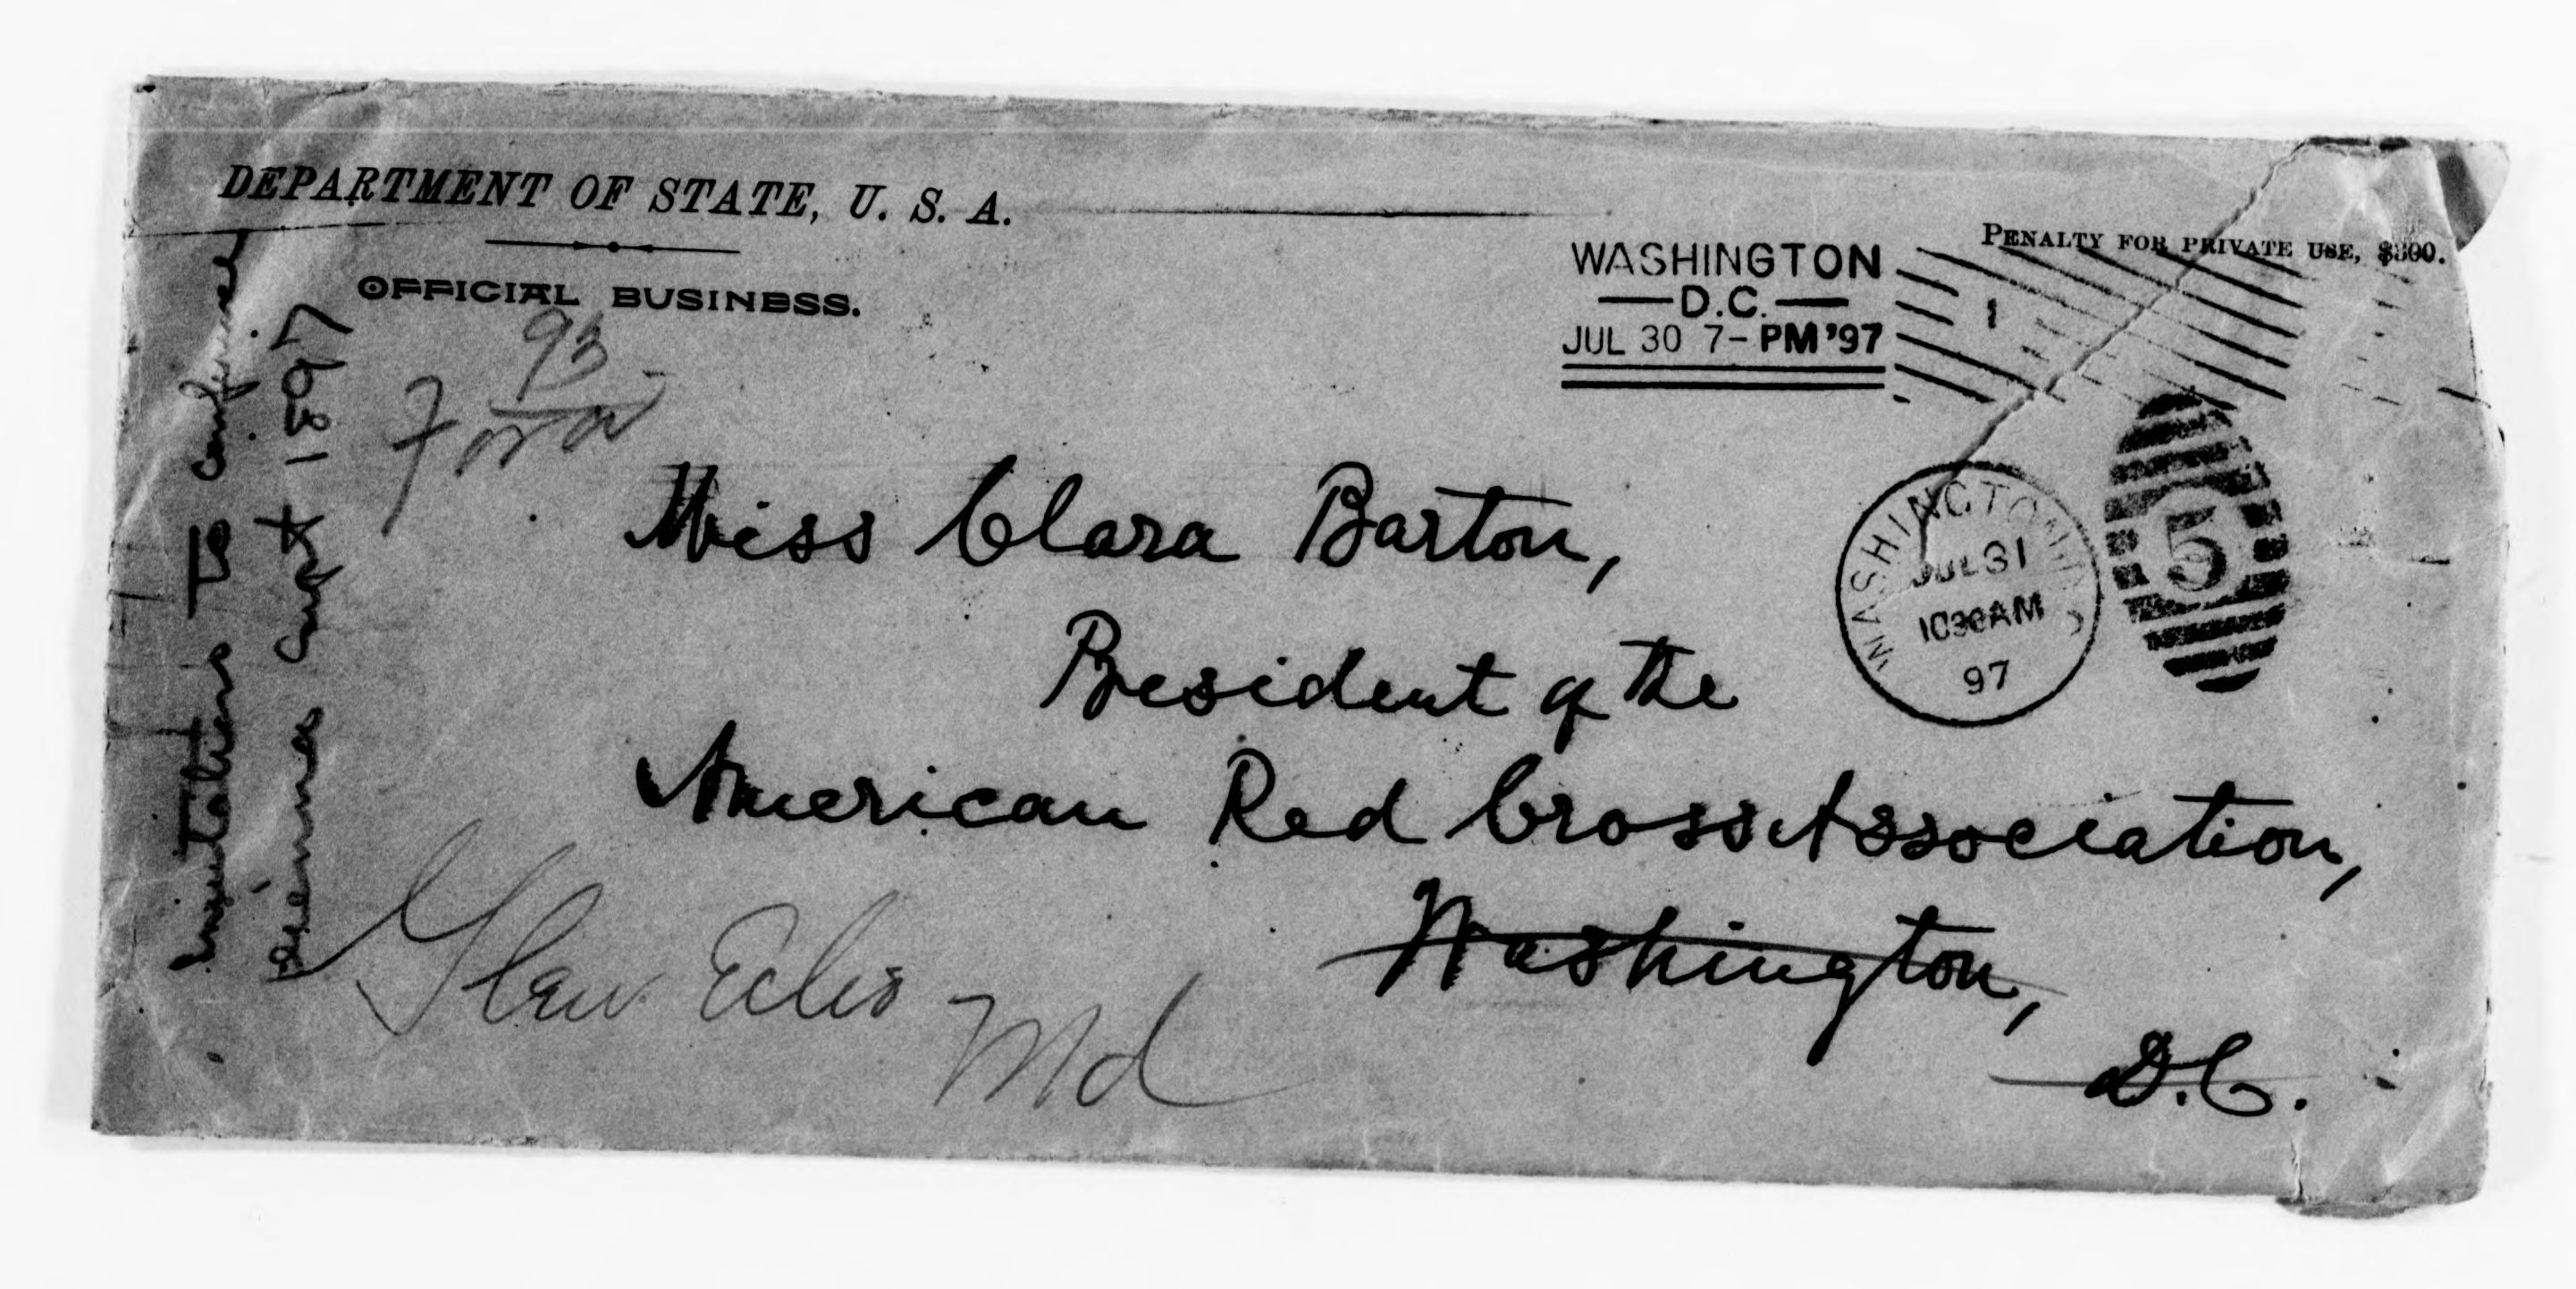 DEPARTMENT OF STATE, U. S. A.
OFFICIAL BUSINESS.
PENALTY FOR PRIVATE USE, $300.
WASHINGTON
D.C.
JUL 30 7-PM '97
93
Forw
Invitations to conference
Vienna Sept 1897
Miss Clara Barton,
President of the
American Red Cross Association,
Washington,
D.C.
WASHINGTON, D.C.
JUL 31
1030AM
97
5
1
Glen Echo
Md